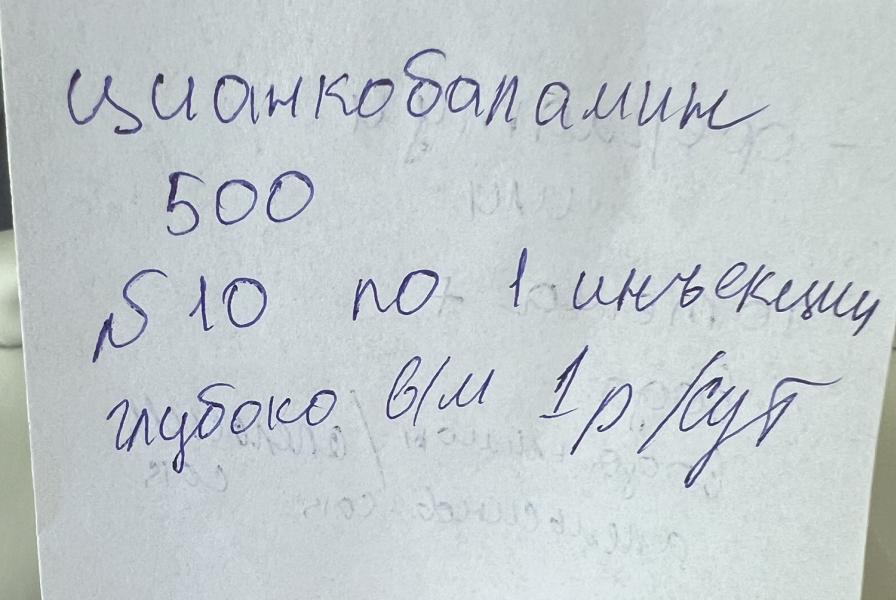 цианкобаламин
500
№10 по 1 инъекции
глубоко в/м 1р/сут